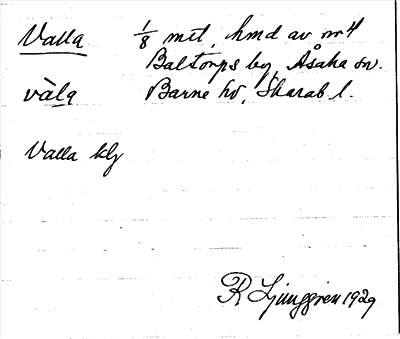 Valla 1/8 mtl, hmd av nr 4
Baltorps by, Åsaka sn.
vàla Barne hd, Skarab l.
Valla klj
R Ljunggren 1929